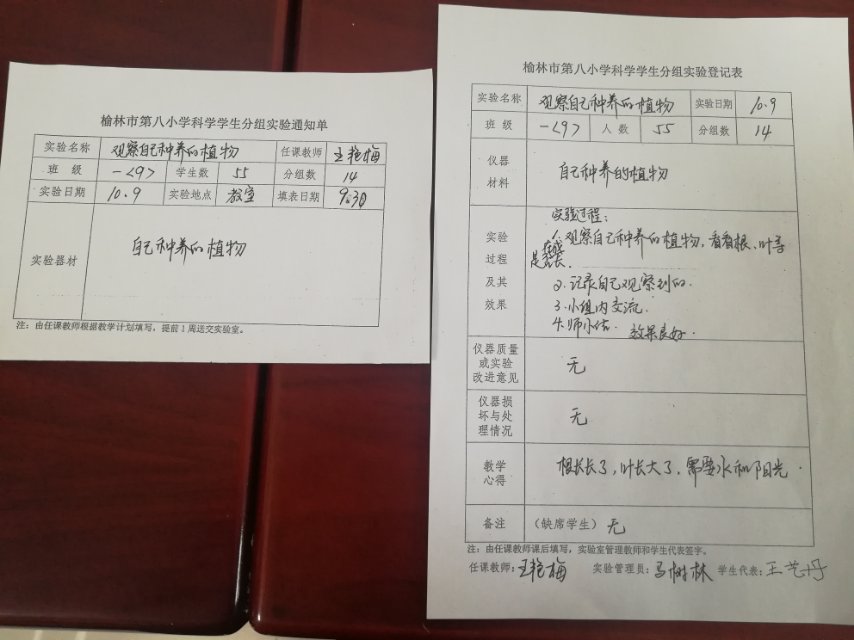 榆林市第八小学科学学生分组实验通知单
实验名称 观察自己种养的植物 任课教师 王艳梅
班 级 一<9> 学生数 55 分组数 14
实验日期 10.9 实验地点 教室 填表日期 9.30
实验器材 自己种养的植物
注：由任课教师根据教学计划填写，提前1周送交实验室。
榆林市第八小学科学学生分组实验登记表
实验名称 观察自己种养的植物 实验日期 10.9
班 级 一<9> 人 数 55 分组数 14
仪器
材料
自己种养的植物
实验
过程
及其
效果
实验过程：
1.观察自己种养的植物，看看根、叶等
是否在成长.
2.记录自己观察到的.
3.小组内交流.
4.师小结. 效果良好.
仪器质量
或实验
改进意见
无
仪器损
坏与处
理情况
无
教学
心得
根长长了，叶长大了，需要水和阳光.
备注 （缺席学生）无
注：由任课教师课后填写，实验室管理教师和学生代表签字。
任课教师：王艳梅 实验管理员：马树林 学生代表：王艺丹